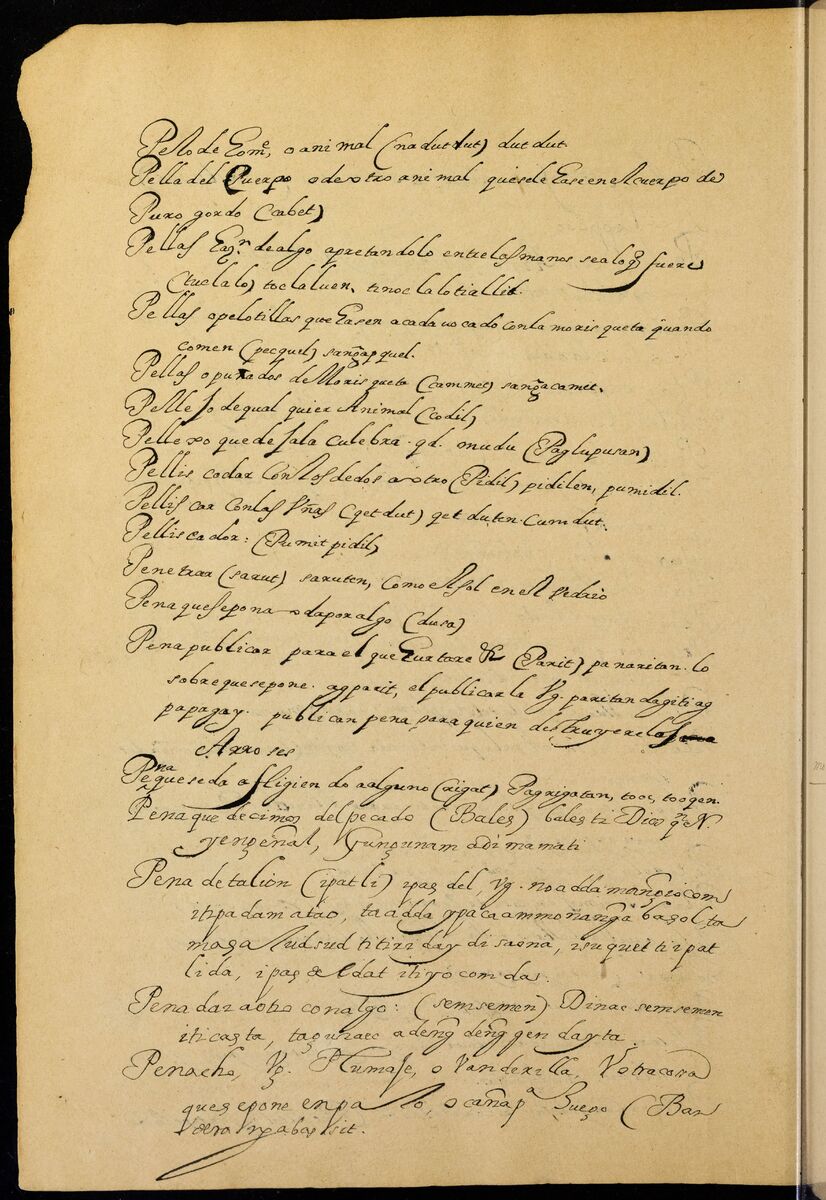 Pelo de Home, o animal (nadutdut) dutdut.
Pella del Cuerpo o de otro animal que se le hase en el cuerpo de
Puro gordo (tabet)
Pellas haz.r de algo apretandolo entre las manos sea lo q fuere
(tuclalo) toclaluen, tinoclalotiallid.
Pellas o pelotillas que hasen acada vocado con la morisqueta quando
comen (pecquel) sangapquel.
Pellas o puñados de Morisqueta (cammet) sangacamet.
Pellejo de qual quier Animal (codil)
Pellexo que deja la culebra. qd. mudu (Paglupusan)
Pelliscodar con los dedos a otro (Pidil) pidilen, pumidil.
Pelliscar con las Vñas (qetdut) qetduten. Cumdut.
Pelliscador: (Pumitpidil)
Penetrar (sarut) saruten, como el sol en el vedrio
Pena que se pona o da por algo (dusa)
Pena publicar para el que hurtare & (Parit) panaritan. lo
sobre que se pone. agparit, el publicarla Vg. paritan dagiti ag
papagay. publican pena para quien destruyere las
Arroses
Pena que se da afligiendo a alguno (rigat) Pagrigatan, tooc, tooqen.
Pena que decimos del pecado (Bales) bales ti Dios qn N.
yenpeñal, Gungunam adi mamati
Pena de talion (ipatli) ipas del, Vg. no adda mangiocom
iti padam a tao, ta adda ypacaammonanga basol ta
masa ludsud ti tiriday di saona, isu quet ti ipat
lida, ipas del dat itiyocomda.
Pena dar a otro con algo: (semsemen) Dinac semsemen
iti casta, tagunaec adeng dengqen dayta.
Penacho, Vg. Plumaje, o Vanderilla, V otra cosa
que se pone en palo, o cañapa Juego (Ban
dera ypabassit.